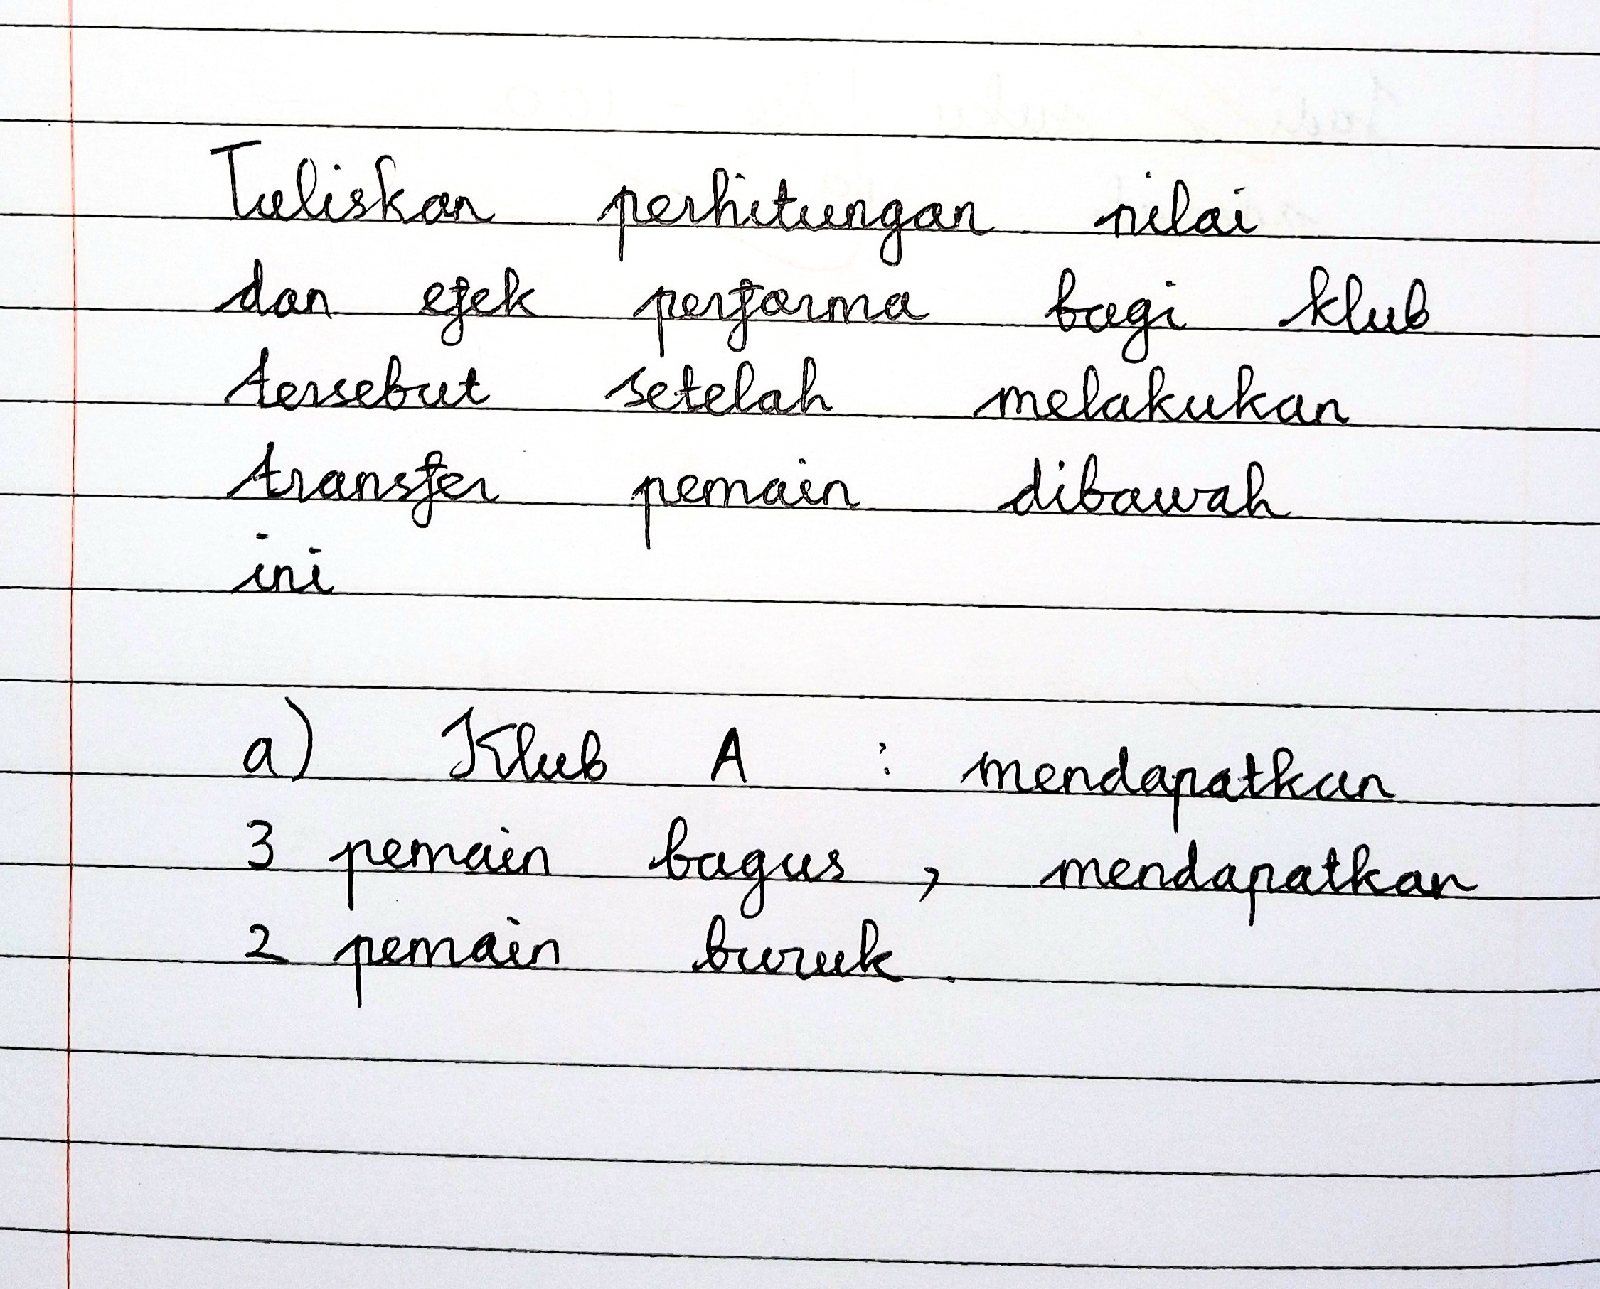 Tuliskan perhitungan nilai
dan efek performa bagi klub
tersebut setelah melakukan
transfer pemain dibawah
ini
a) Klub A : mendapatkan
3 pemain bagus , mendapatkan
2 pemain buruk .